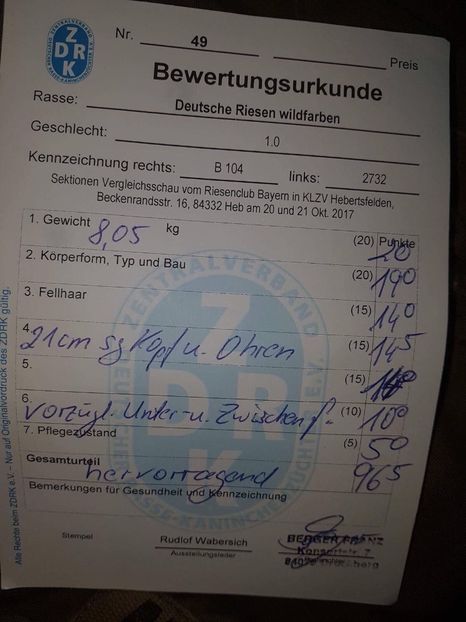 ZENTRALVERBAND
ZDRK
Nr. 49
Preis
Bewertungsurkunde
Rasse: Deutsche Riesen wildfarben
Geschlecht: 1.0
Kennzeichnung rechts: B 104 links: 2732
Sektionen Vergleichsschau vom Riesenclub Bayern in KLZV Hebertsfelden,
Beckenrandsstr. 16, 84332 Heb am 20 und 21 Okt. 2017
1. Gewicht 8,05 kg (20) Punkte 20
2. Körperform, Typ und Bau (20) 190
3. Fellhaar (15) 140
4. 21cm sg Kopf u. Ohren (15) 145
5. (15)
6. vorzügl. Unter- u. Zwischenf. (10) 100
7. Pflegezustand (5) 50
Gesamturteil hervorragend 965
Bemerkungen für Gesundheit und Kennzeichnung
Stempel
Rudlof Wabersich
Ausstellungsleiter
BERGER FRANZ
Alle Rechte beim ZDRK e.V. – Nur auf Originalvordruck des ZDRK gültig.
ZENTRALVERBAND
ZDRK